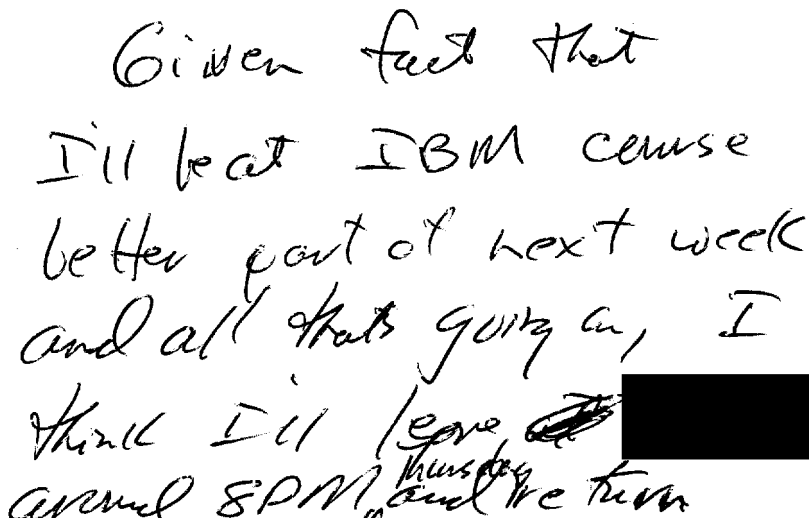 Given fact that
I'll be at IBM course
better part of next week
and all thats going on, I
think I'll leave
around 8PM Thursday and return